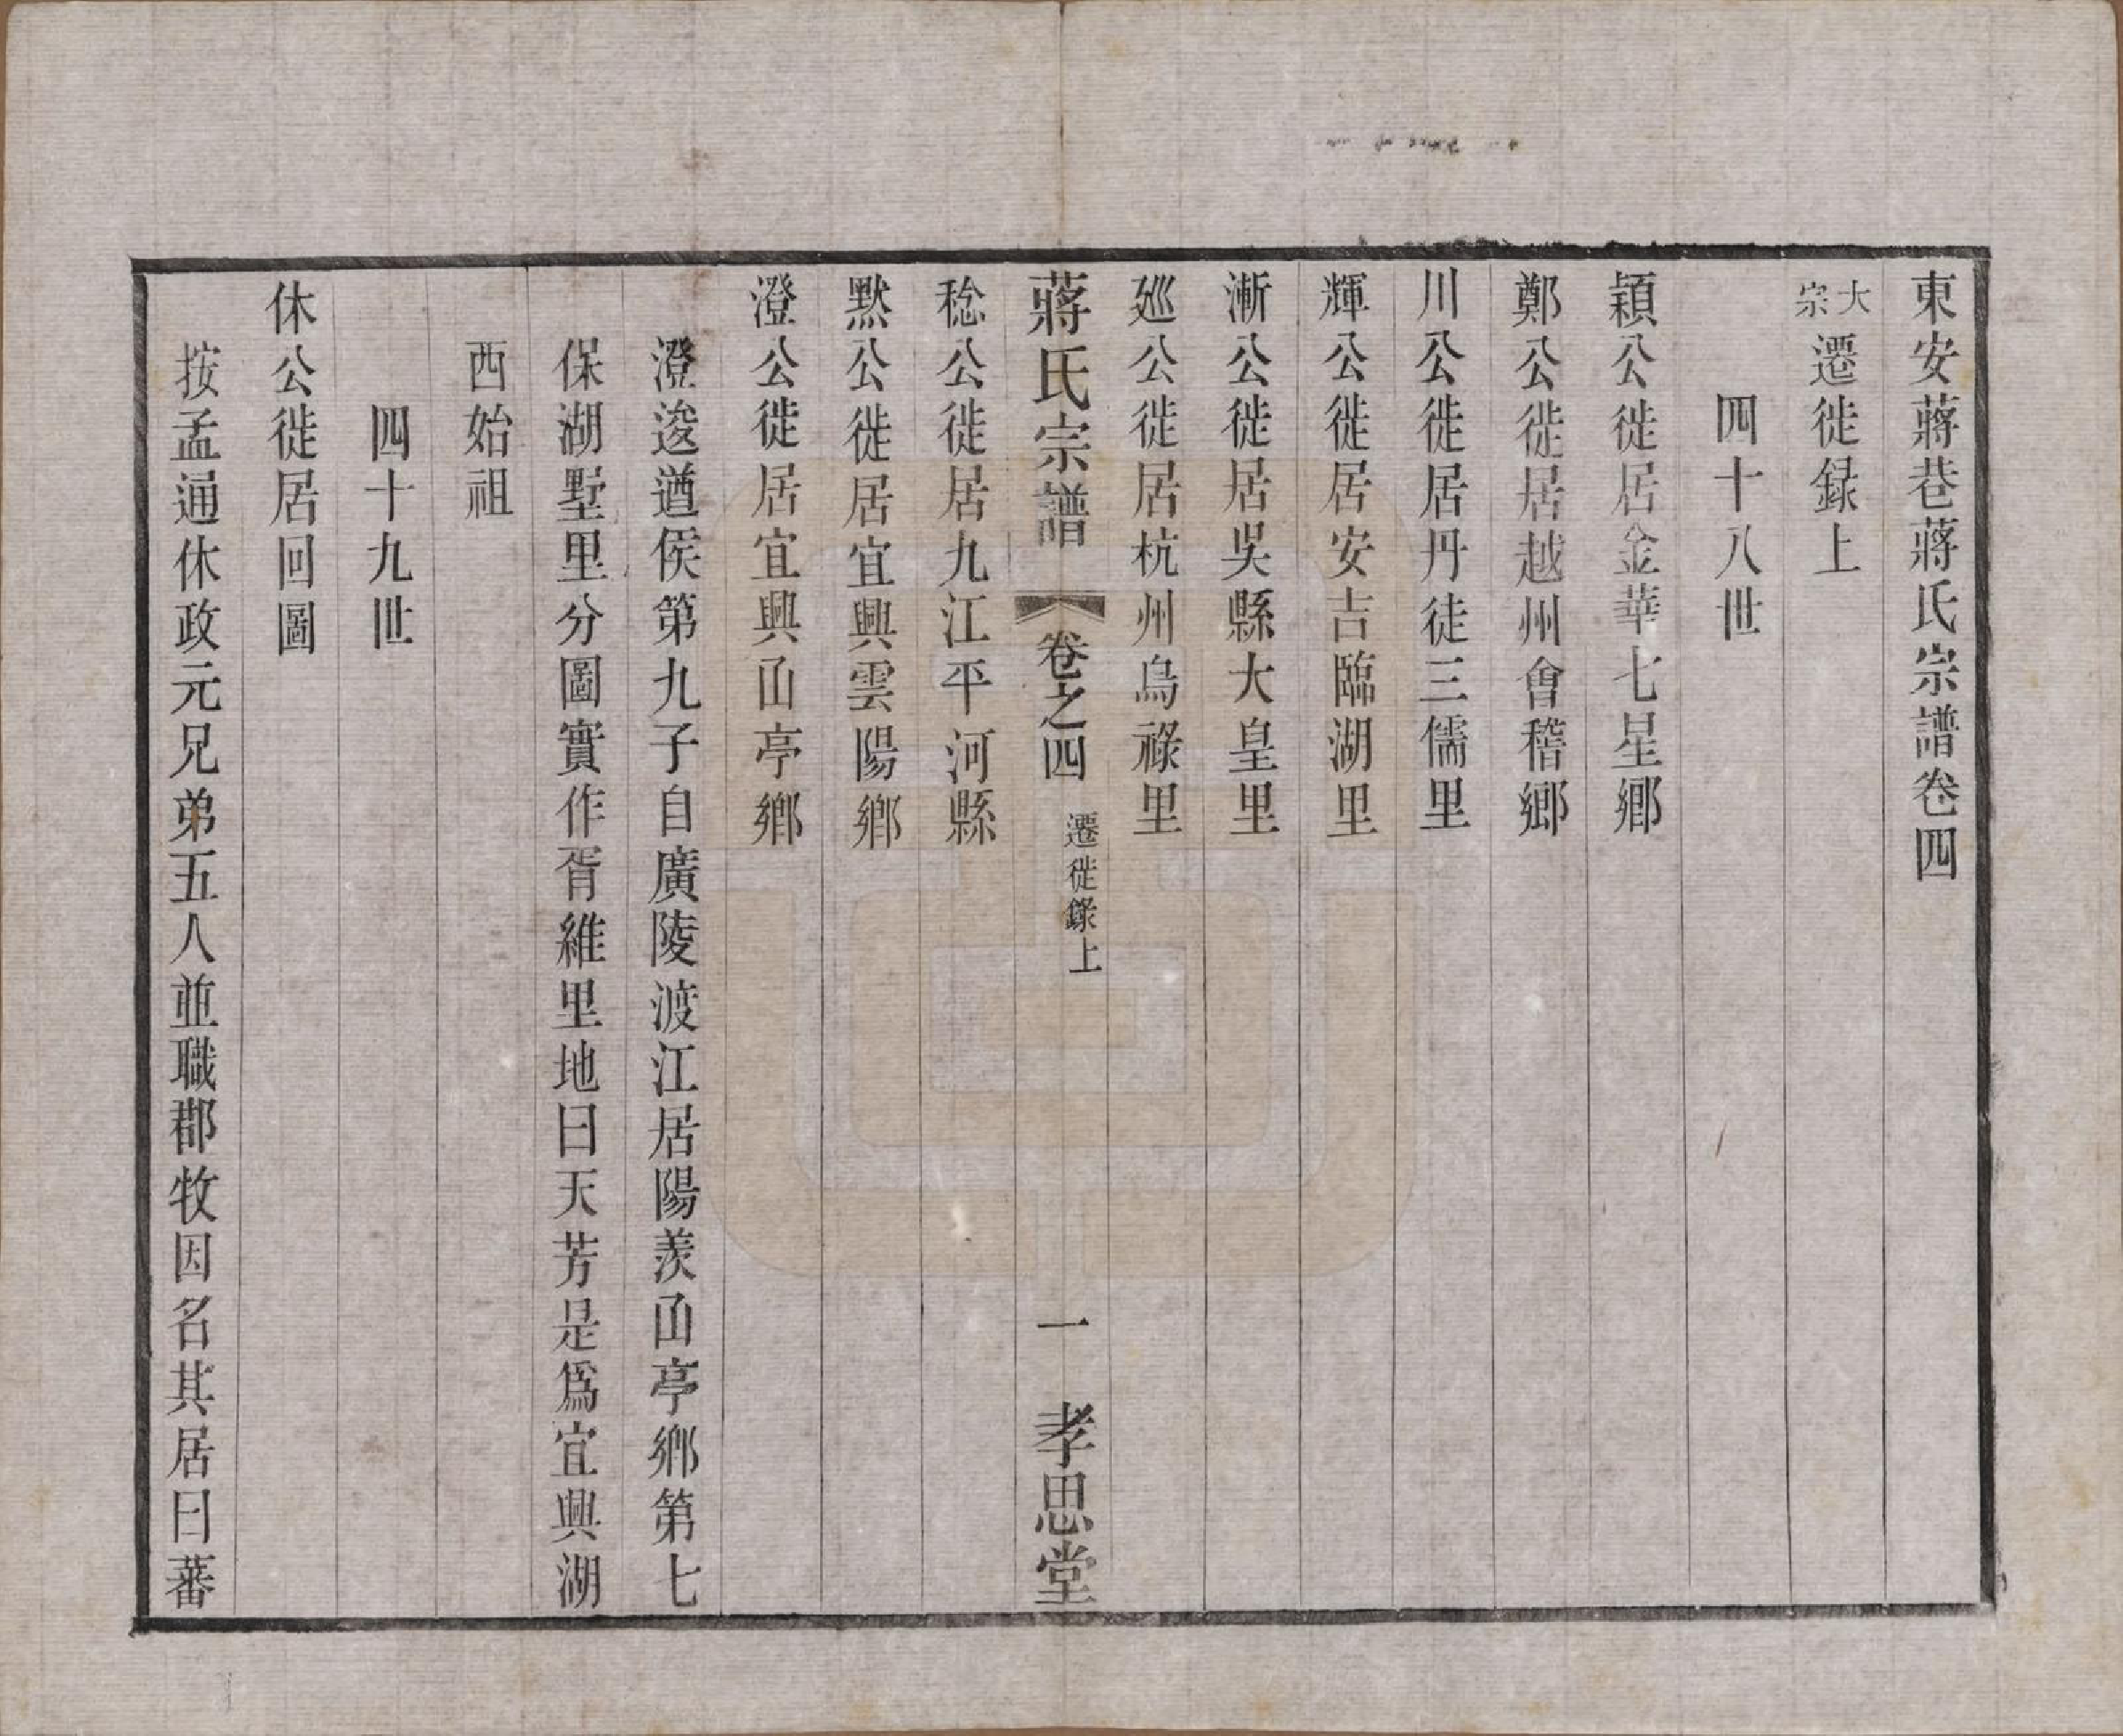 東安蔣巷蔣氏宗譜卷四
大宗遷徙録上
四十八世
穎公徙居金華七星鄉
鄭公徙居越州會稽鄉
川公徙居丹徒三儒里
輝公徙居安吉臨湖里
漸公徙居吳縣大皇里
廵公徙居杭州烏祿里
蔣氏宗譜 卷之四 遷徙錄上 一 孝思堂
稔公徙居九江平河縣
默公徙居宜興雲陽鄉
澄公徙居宜興凾亭鄉
澄逡遒侯第九子自廣陵渡江居陽羨凾亭鄉第七
保湖墅里分圖實作胥維里地曰天芳是爲宜興湖
西始祖
四十九世
休公徙居回圖
按孟通休政元兄弟五人並職郡牧因名其居曰蕃